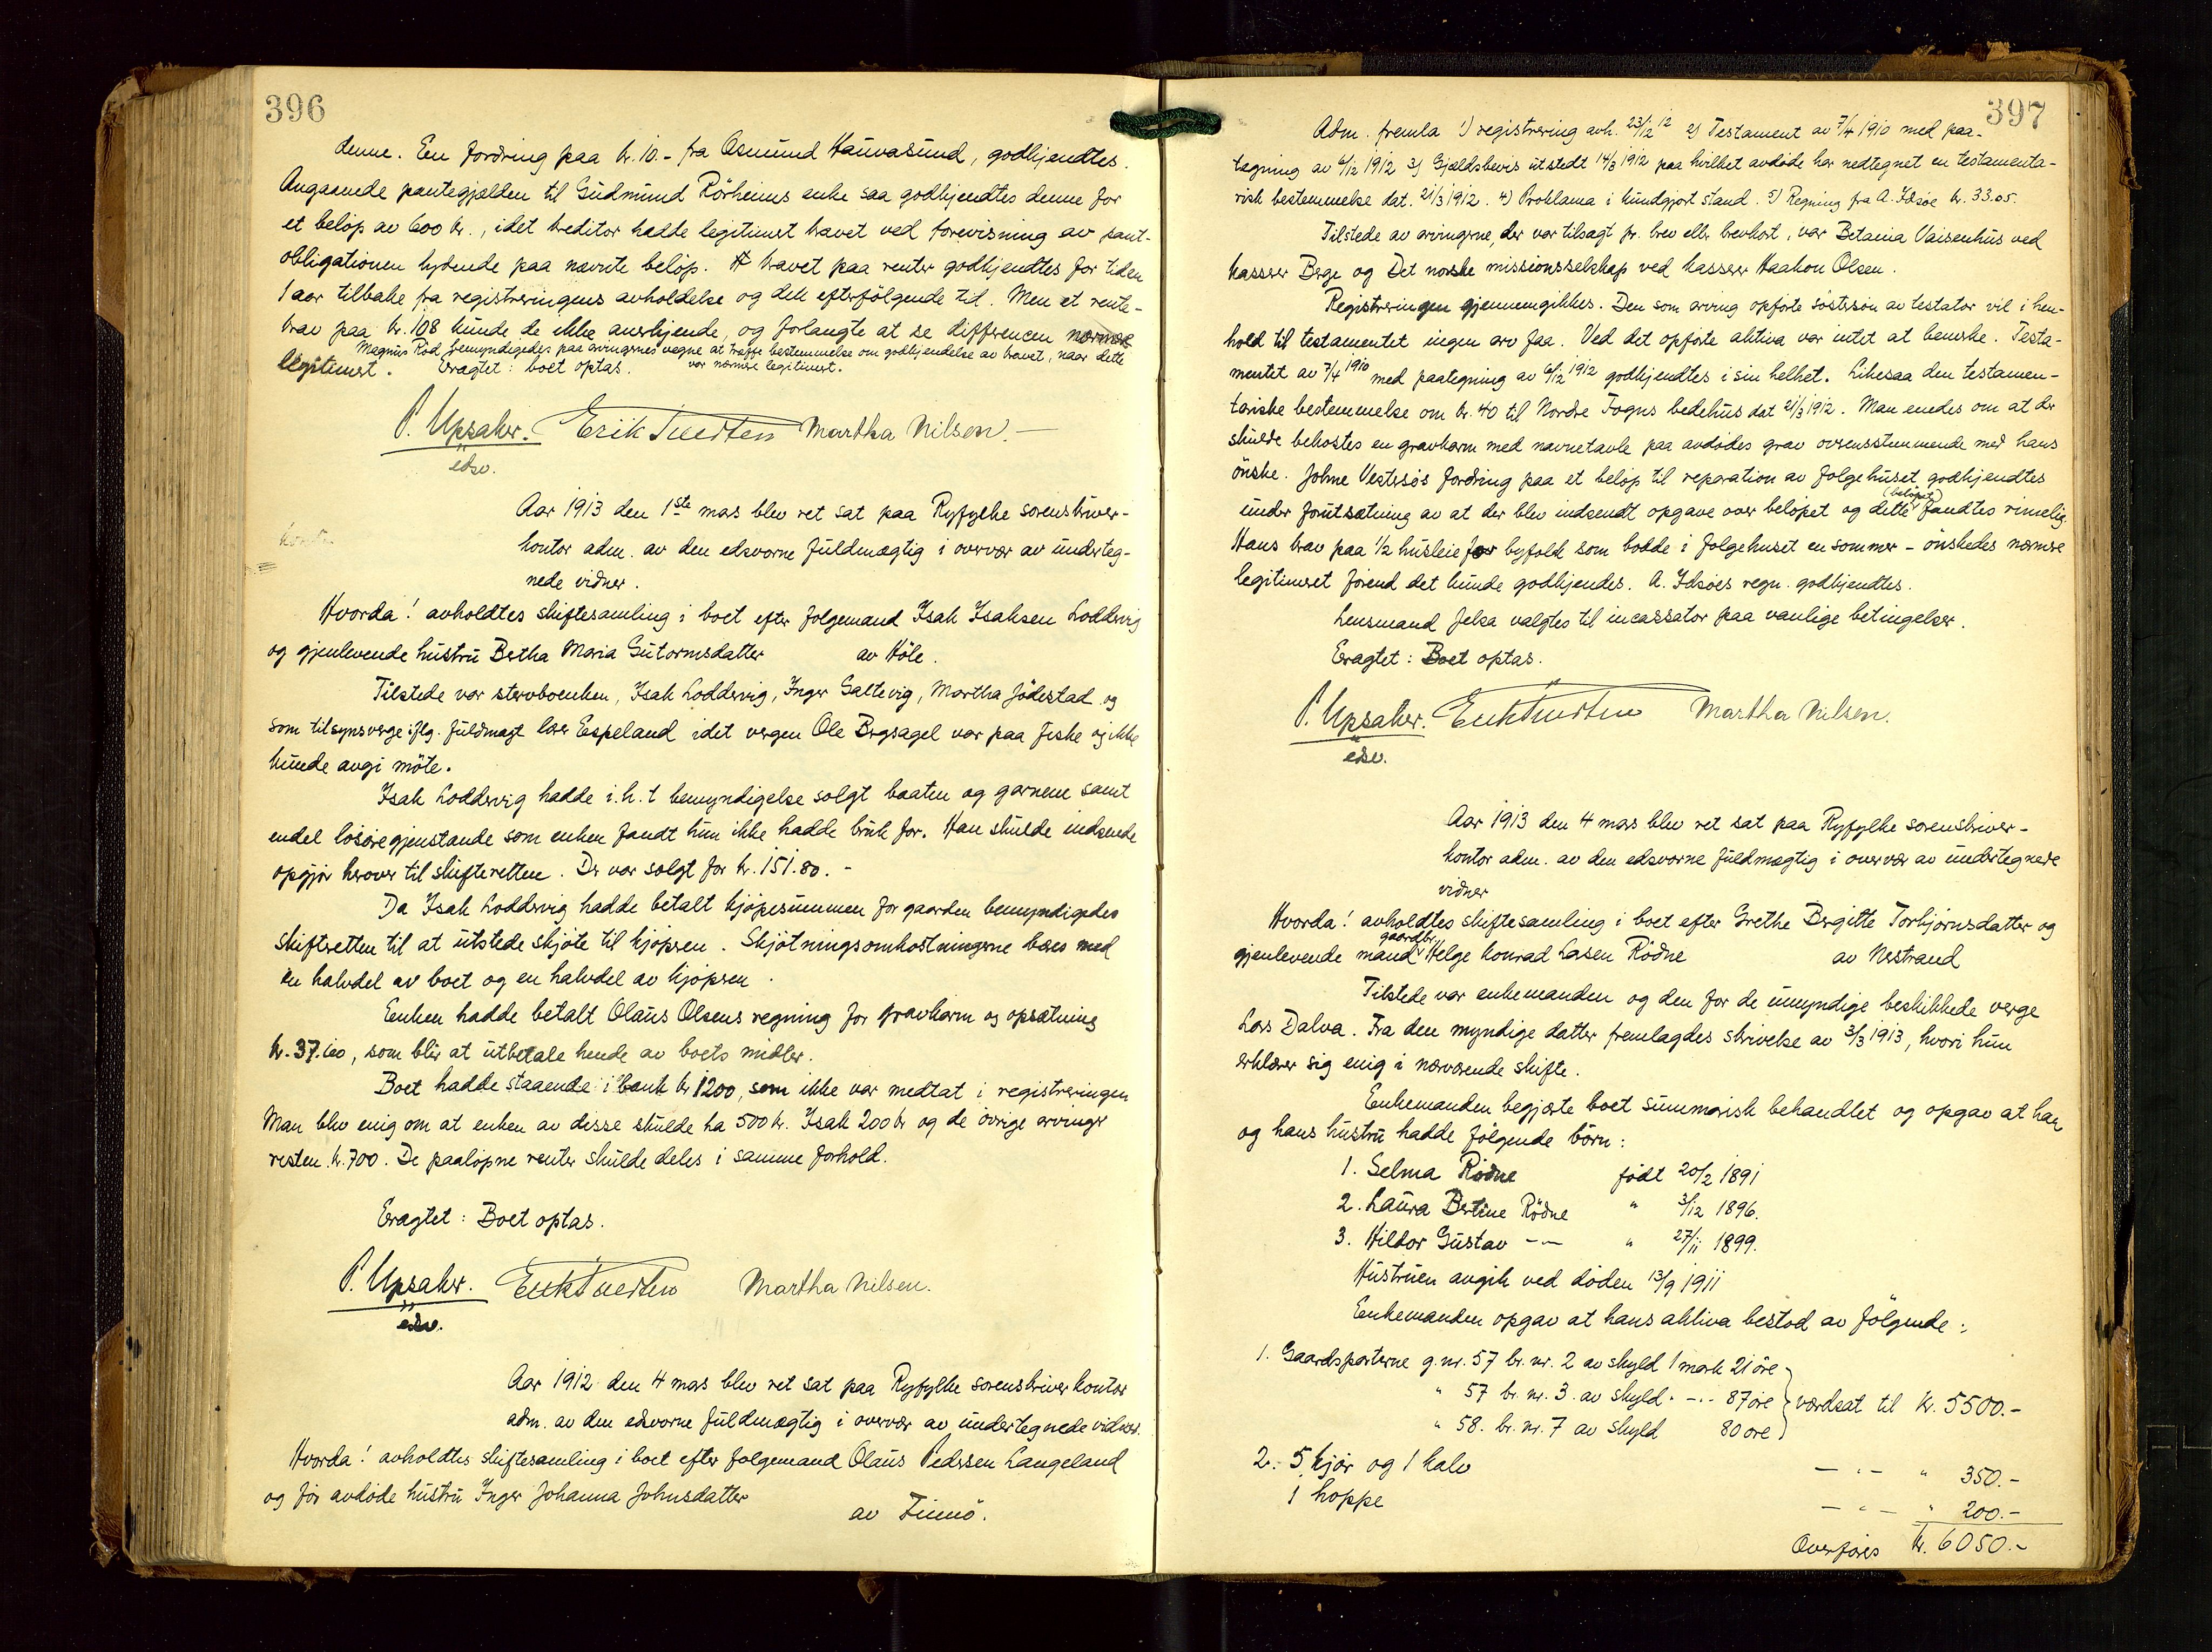 396
denne. En fordring paa kr. 10.- fra Asmund Hauvasund, godkjendtes.
Angaaende pantegjælden til Gudmund Rörheims enke saa godkjendtes denne for
et belöp av 600 kr., idet kreditor hadde legitimert kravet ved forevisning av pant-
obligationen lydende paa nævnte belöp. Kravet paa renter godkjendtes for tiden
1 aar tilbake fra registreringens avholdelse og den efterfölgende tid. Men et rente-
krav paa kr. 108 kunde de ikke anerkjende, og forlangte at se differencen nærmere
Magnus Röd bemyndigedes paa arvingernes vegne at træffe bestemmelse om godkjendelse av kravet, naar dette
legitimert. Eragtet: boet optas. var nærmere legitimert.
P. Upsaker. Erik Tuedten Martha Nilsen.-
edsv.
Aar 1913 den 1ste mars blev ret sat paa Ryfylke sorenskriver-
kontor adm. av den edsvorne fuldmægtig i overvær av underteg-
nede vidner.
Hvorda! avholdtes skiftesamling i boet efter folgemand Isak Isaksen Loddervig
og gjenlevende hustru Bertha Maria Gutormsdatter av Höle.
Tilstede var stervboenken, Isak Loddervig, Inger Saltevig, Martha Jödestad og
som tilsynsverge iflg. fuldmagt lærer Espeland idet vergen Ole Bergsagel var paa fiske og ikke
kunde avgi möte.
Isak Loddervig hadde i.h.t bemyndigelse solgt baaten og garnene samt
endel lösöregjenstande som enken fandt hun ikke hadde bruk for. Han skulde indsende
opgjör herover til skifteretten. Der var solgt for kr. 151.80.-
Da Isak Loddervig hadde betalt kjöpesummen for gaarden bemyndigedes
skifteretten til at utstede skjöte til kjöperen. Skjötningsomkostningerne bæres med
en halvdel av boet og en halvdel av kjöperen.
Enken hadde betalt Olaus Olsens regning for gravkarm og opsætning
kr. 37.60, som blir at utbetale hende av boets midler.
Boet hadde staaende i bank kr 1200, som ikke var medtat i registreringen
Man blev enig om at enken av disse skulde ha 500 kr. Isak 200 kr og de övrige arvinger
resten kr. 700. De paalöpne renter skulde deles i samme forhold.
Eragtet: Boet optas.
P. Upsaker. Erik Tuedten Martha Nilsen.
edsv.
Aar 1912 den 4 mars blev ret sat paa Ryfylke sorenskriverkontor
adm. av den edsvorne fuldmægtig i overvær av undertegnede vidner.
Hvorda! avholdtes skiftesamling i boet efter folgemand Olaus Pedersen Langeland
og för avdöde hustru Inger Johanna Johnsdatter
av Finnö.
397
Adm. fremla 1) registrering avh. 23/12 12 2) Testament av 7/4 1910 med paa-
tegning av 6/12 1912 3) Gjældsbevis utstedt 14/3 1912 paa hvilket avdöde har nedtegnet en testamenta-
risk bestemmelse dat. 21/3 1912. 4) Proklama i kundgjort stand. 5) Regning fra A. Idsöe kr. 33.05.
Tilstede av arvingerne, der var tilsagt pr. brev eller brevkort, var Betania Vaisenhus ved
kasserer Berge og Det norske missionsselskap ved kasserer Haakon Olsen.
Registreringen gjennemgikkes. Den som arving opförte söstersön av testator vil i hen-
hold til testamentet ingen arv faa. Ved det opförte aktiva var intet at bemerke. Testa-
mentet av 7/4 1910 med paategning av 6/12 1912 godkjendtes i sin helhet. Likesaa den testamen-
tariske bestemmelse om kr. 40 til Nordre Fogns bedehus dat 21/3 1912. Man enedes om at der
skulde bekostes en gravkarm med navnetavle paa avdödes grav overensstemmende med hans
önske. Johne Vestersös fordring paa et belöp til reparation av folgehuset godkjendtes
(belöpet)
under forutsætning av at der blev indsendt opgave over belöpet og dette fandtes rimelig.
Hans krav paa 1/2 husleie for byfolk som bodde i folgehuset en sommer - önskedes nærmere
legitimeret förend det kunde godkjendes. A. Idsöes regn. godkjendtes.
Lensmand Jelsa valgtes til incassator paa vanlige betingelser.
Eragtet: Boet optas.
P. Upsaker. Erik Tuedten Martha Nilsen.
edsv.
Aar 1913 den 4 mars blev ret sat paa Ryfylke sorenskriver-
kontor adm. av den edsvorne fuldmægtig i overvær av undertegnede
vidner
Hvorda! avholdtes skiftesamling i boet efter Grethe Bergitte Torbjörnsdatter og
gaardbr.
gjenlevende mand Helge Konrad Larsen Rödne av Nerstrand
Tilstede var enkemanden og den for de umyndige beskikkede verge
Lars Dalva. Fra den myndige datter fremlagdes skrivelse av 3/3 1913, hvori hun
erklærer sig enig i nærværende skifte.
Enkemanden begjærte boet summarisk behandlet og opgav at han
og hans hustru hadde fölgende börn:
1. Selma Rödne födt 20/2 1891
2. Laura Bertine Rödne " 3/12 1896.
3. Hildor Gustav -"- " 27/11 1899.
Hustruen avgik ved döden 13/9 1911
Enkemanden opgav at hans aktiva bestod av fölgende:
1. Gaardsparterne g.nr. 57 br. nr. 2 av skyld 1 mark 21 öre
" 57 br. nr. 3. av skyld. -"- 87 öre værdsat til kr. 5500.-
" 58. br. nr. 7 av skyld 80 öre
2. 5 kjör og 1 kalv -"- " 350.-
1 hoppe -"- " 200.-
Overföres kr. 6050.-